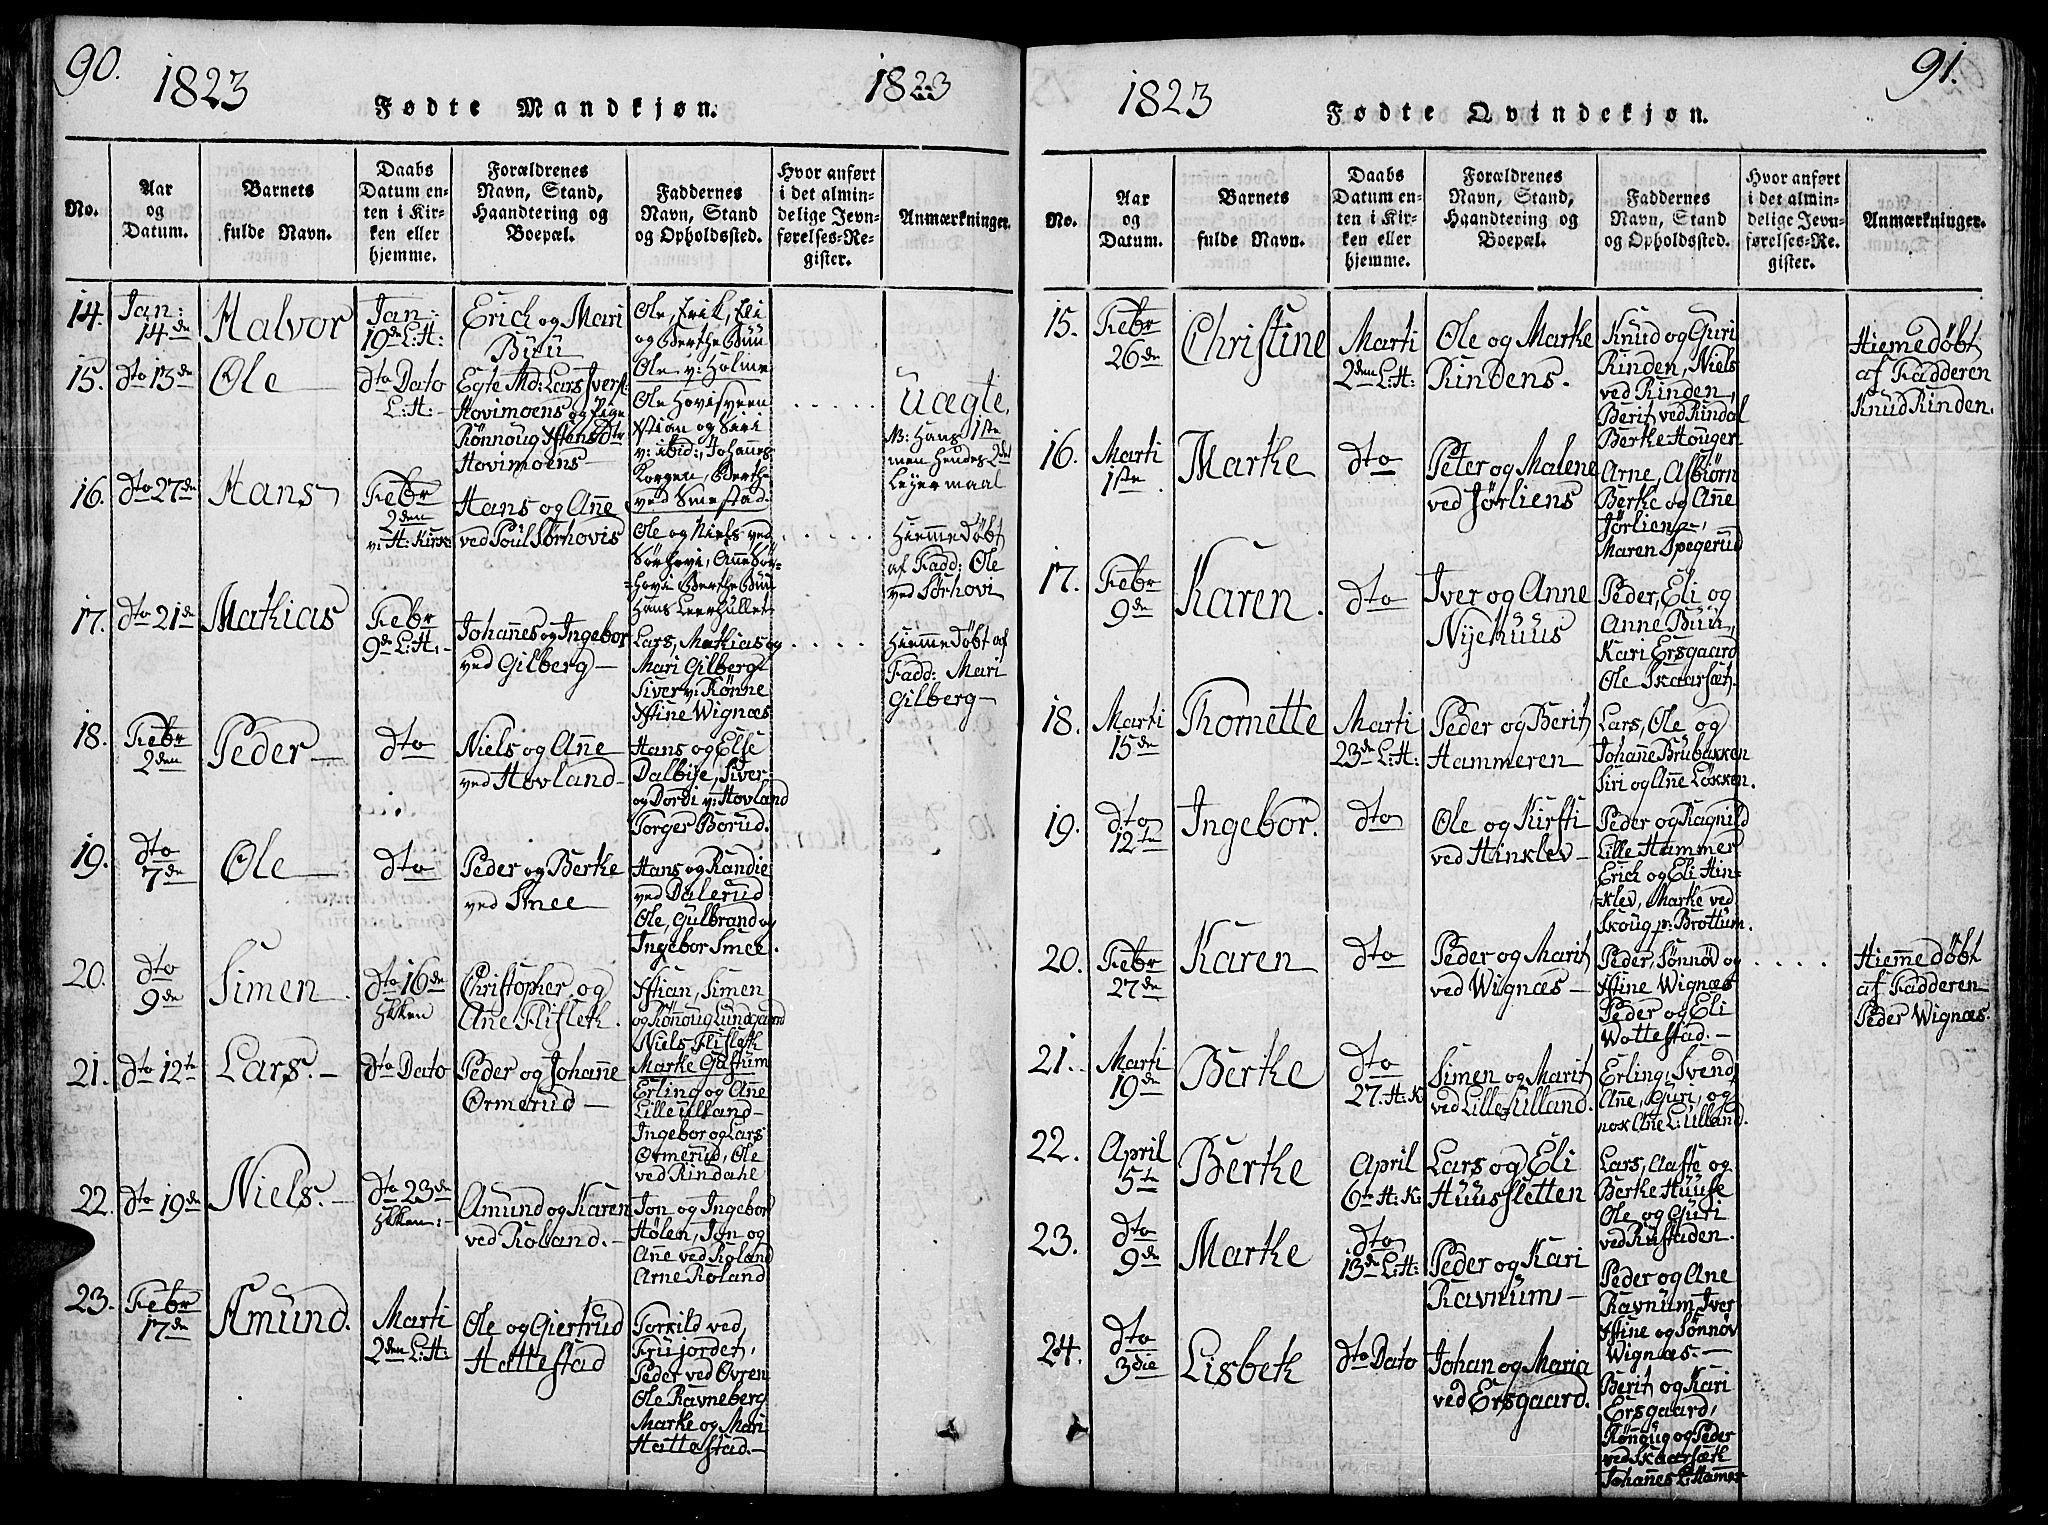 90.
1823
1823
Fødte Mandkjøn.
No.
Aar
og
Datum.
Barnets
fulde Navn.
Daabs
Datum en-
ten i Kir-
ken eller
hjemme.
Forældrenes
Navn, Stand,
Haandtering og
Boepæl.
Faddernes
Navn, Stand
og Opholdssted.
Hvor anført
i det almin-
delige Jevn-
førelses-Re-
gister.
Anmærkninger.
14.
Jan:
14de
Halvor
Jan:
19de L:H:
Erich og Mari
Buu
Ole, Erik, Eli
og Berthe Buu
Ole v: Holme
15.
dto 13de
Ole
dto Dato
L:H:
Egte Md: Lars Ivers:
Hovimoens og Pige
Rönnoug Xstensdtr
Hovimoens
Ole Hovisveen
Xstian og Siri
v: ibid:, Johannes
Korgen, Berthe
ved Smestad.
Uægte,
M: Hans 1ste
men hendes 2det
Lejermaal
16.
dto 27de
Hans
Febr
2den
v: H: Kirk:
Hans og Ane
ved Poul Sørhovis
Ole og Niels ved
Sørhovi, Anne Sør-
hovi Berthe Buu
Hans Leerhullet
Hiemmedøbt
af Fadd: Ole
ved Sørhovi
17.
dto 21de
Mathias
Febr
9de L:H:
Johannes og Ingebor
ved Gilberg
Lars, Mathias og
Mari Gilberg
Siver v: Rønne
Xstine Wignæs
Hiemmedøbt af
Fadd: Mari
Gilberg
18.
Febr
2den
Peder
dto
Niels og Ane
ved Hovland
Hans og Else
Dalbije, Siver
og Dordi v: Hovland
Torger Borud.
19.
dto
7de
Ole
dto
Peder og Berthe
ved Smee
Hans og Randie
ved Dalerud
Ole, Gulbrand og
Ingebor Smee.
20.
dto
9de
Simen
dto 16de
Christopher og
Ane Flifleth.
Xstian, Simen
og Rönoug Lundgaard
Niels Flifleth
Marthe Gastum
21.
dto 12te
Lars.
dto Dato
Peder og Johanne
Ormerud
Erling og Ane
Lille ulland
Ingebor og Lars
Ormerud, Ole
ved Rindahl
22.
dto 19de
Niels.
dto 23de
Amund og Karen
ved Roland.
Jon og Ingebor
Hølen, Jon og
Ane ved Roland
Arne Roland
23.
Febr
17de
Amund.
Marti
2den L:H:
Ole og Giertrud
Hattestad
Torkild ved
Frujordet,
Peder ved Ovren
Ole Ravneberg
Marthe og Mari
Hattestad.
91.
1823
Fødte Qvindekjøn.
No.
Aar
og
Datum.
Barnets
fulde Navn.
Daabs
Datum en-
ten i Kir-
ken eller
hjemme.
Forældrenes
Navn, Stand,
Haandtering og
Boepæl.
Faddernes
Navn, Stand
og Opholdssted.
Hvor anført
i det almin-
delige Jevn-
førelses-Re-
gister.
Anmærkninger.
15.
Febr
26de
Christine
Marti
2den L:H:
Ole og Marthe
Rindens.
Knud og Guri
Rinden, Niels
ved Rinden,
Berit ved Rindal
Berthe Houger
Hiemedøbt
af Fadderen
Knud Rinden.
16.
Marti
1ste
Marthe
dto
Peter og Malene
ved Jørliens
Arne, Asbiørn
Berthe og Ane
Jørlien,
Maren Spegerud
17.
Febr
9de
Karen.
dto
Iver og Anne
Nyehuus
Peder, Eli og
Anne Buu,
Kari Ersgaard
Ole Skaarsæt.
18.
Marti
15de
Thomette
Marti
23de L:H:
Peder og Berit
Hammeren
Lars, Ole og
Johanne Brubakken
Siri og Ane Løkken.
19.
dto
12te
Ingebor.
dto
Ole og Kirsti
ved Hinklev
Peder og Ragnild
Lille Hammer
Erich og Eli Hin-
klev, Marthe ved
Skoug p: Brøttum.
20.
Febr
27de
Karen
dto
Peder og Marit
ved Wignæs
Peder, Sønnøv og
Xstine Wignæs
Peder og Eli
Wottestad.
Hiemedøbt
af Fadderen
Peder Wignæs.
21.
Marti
19de
Berthe
dto
27. H:K
Simen og Marit
ved Lille Ulland.
Erling, Svend,
Ane, Guri, og
nok Ane L: ulland.
22.
April
5te
Berthe
April
6te H:K:
Lars og Eli
Huusfletten
Lars, Aasse og
Berthe Huuse
Ole og Guri
ved Rustaden.
23.
dto
9de
Marthe
dto
13de L:H:
Peder og Kari
Ravnums
Peder og Ane
Ravnum, Iver
Xstine og Sønnøv
Wignæs.
24.
dto
3die
Lisbeth
dto Dato
Johan og Maria
ved Ersgaard.
Berit og Kari
Ersgaard,
Rønoug og Peder
ved Skaarsæth
Johanes L: Hamer